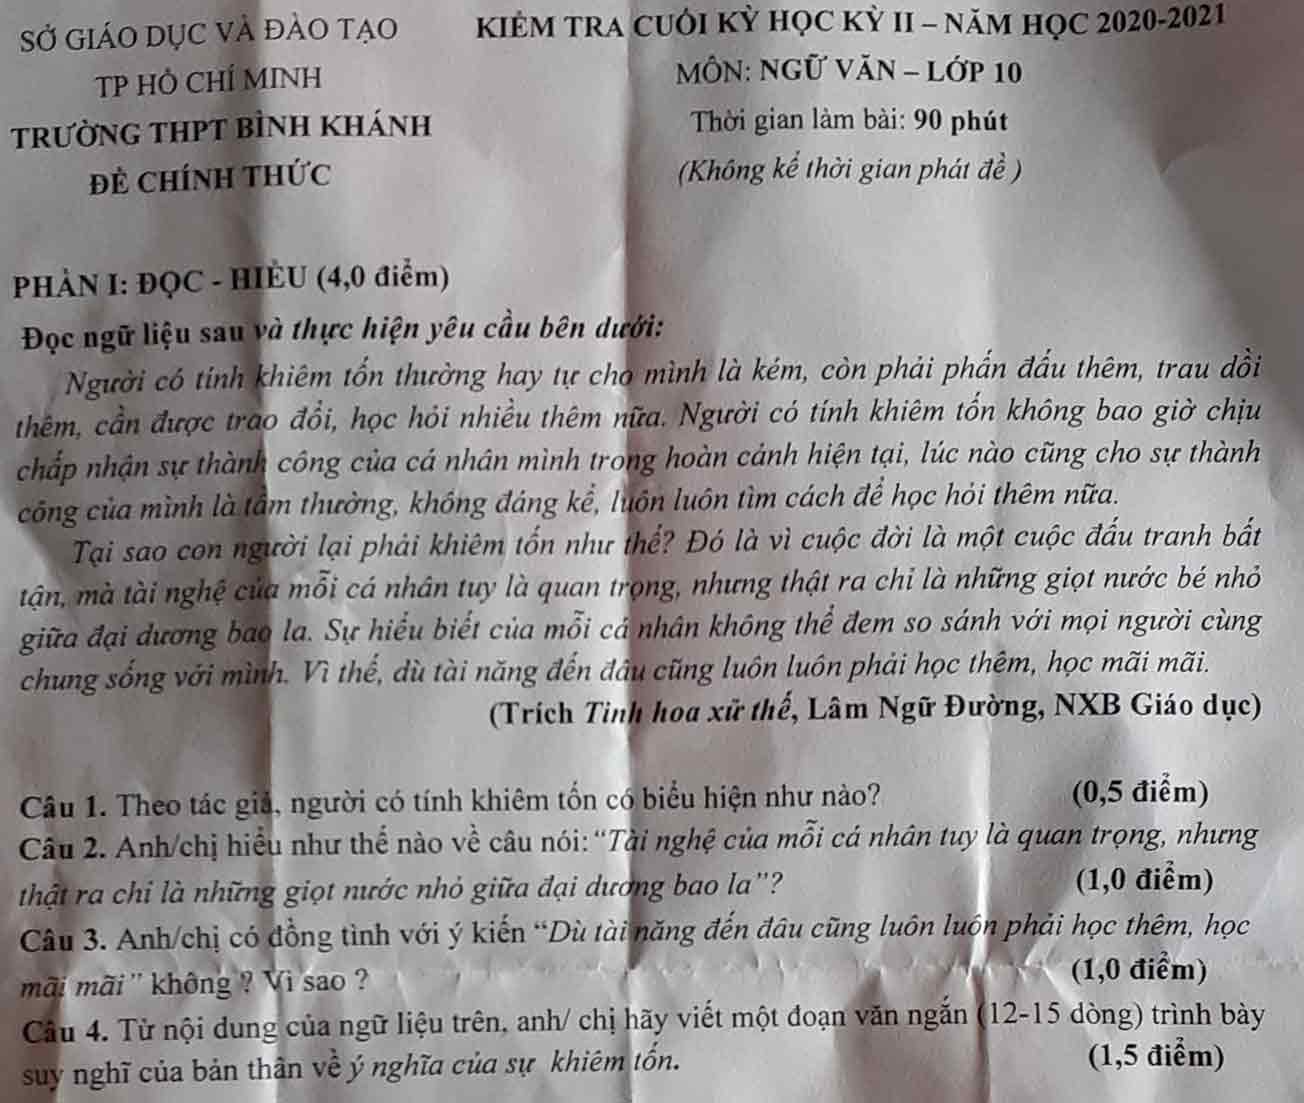 SỞ GIÁO DỤC VÀ ĐÀO TẠO
KIỂM TRA CUỐI KỲ HỌC KỲ II – NĂM HỌC 2020-2021
TP HỒ CHÍ MINH
MÔN: NGỮ VĂN – LỚP 10
TRƯỜNG THPT BÌNH KHÁNH
Thời gian làm bài: 90 phút
ĐỀ CHÍNH THỨC
(Không kể thời gian phát đề )
PHẦN I: ĐỌC - HIỂU (4,0 điểm)
Đọc ngữ liệu sau và thực hiện yêu cầu bên dưới:
Người có tính khiêm tốn thường hay tự cho mình là kém, còn phải phấn đấu thêm, trau dồi
thêm, cần được trao đổi, học hỏi nhiều thêm nữa. Người có tính khiêm tốn không bao giờ chịu
chấp nhận sự thành công của cá nhân mình trong hoàn cảnh hiện tại, lúc nào cũng cho sự thành
công của mình là tầm thường, không đáng kể, luôn luôn tìm cách để học hỏi thêm nữa.
Tại sao con người lại phải khiêm tốn như thế? Đó là vì cuộc đời là một cuộc đấu tranh bất
tận, mà tài nghệ của mỗi cá nhân tuy là quan trọng, nhưng thật ra chỉ là những giọt nước bé nhỏ
giữa đại dương bao la. Sự hiểu biết của mỗi cá nhân không thể đem so sánh với mọi người cùng
chung sống với mình. Vì thế, dù tài năng đến đâu cũng luôn luôn phải học thêm, học mãi mãi.
(Trích Tinh hoa xử thế, Lâm Ngữ Đường, NXB Giáo dục)
Câu 1. Theo tác giả, người có tính khiêm tốn có biểu hiện như nào? (0,5 điểm)
Câu 2. Anh/chị hiểu như thế nào về câu nói: “Tài nghệ của mỗi cá nhân tuy là quan trọng, nhưng
thật ra chỉ là những giọt nước nhỏ giữa đại dương bao la”? (1,0 điểm)
Câu 3. Anh/chị có đồng tình với ý kiến “Dù tài năng đến đâu cũng luôn luôn phải học thêm, học
mãi mãi” không ? Vì sao ? (1,0 điểm)
Câu 4. Từ nội dung của ngữ liệu trên, anh/ chị hãy viết một đoạn văn ngắn (12-15 dòng) trình bày
suy nghĩ của bản thân về ý nghĩa của sự khiêm tốn. (1,5 điểm)